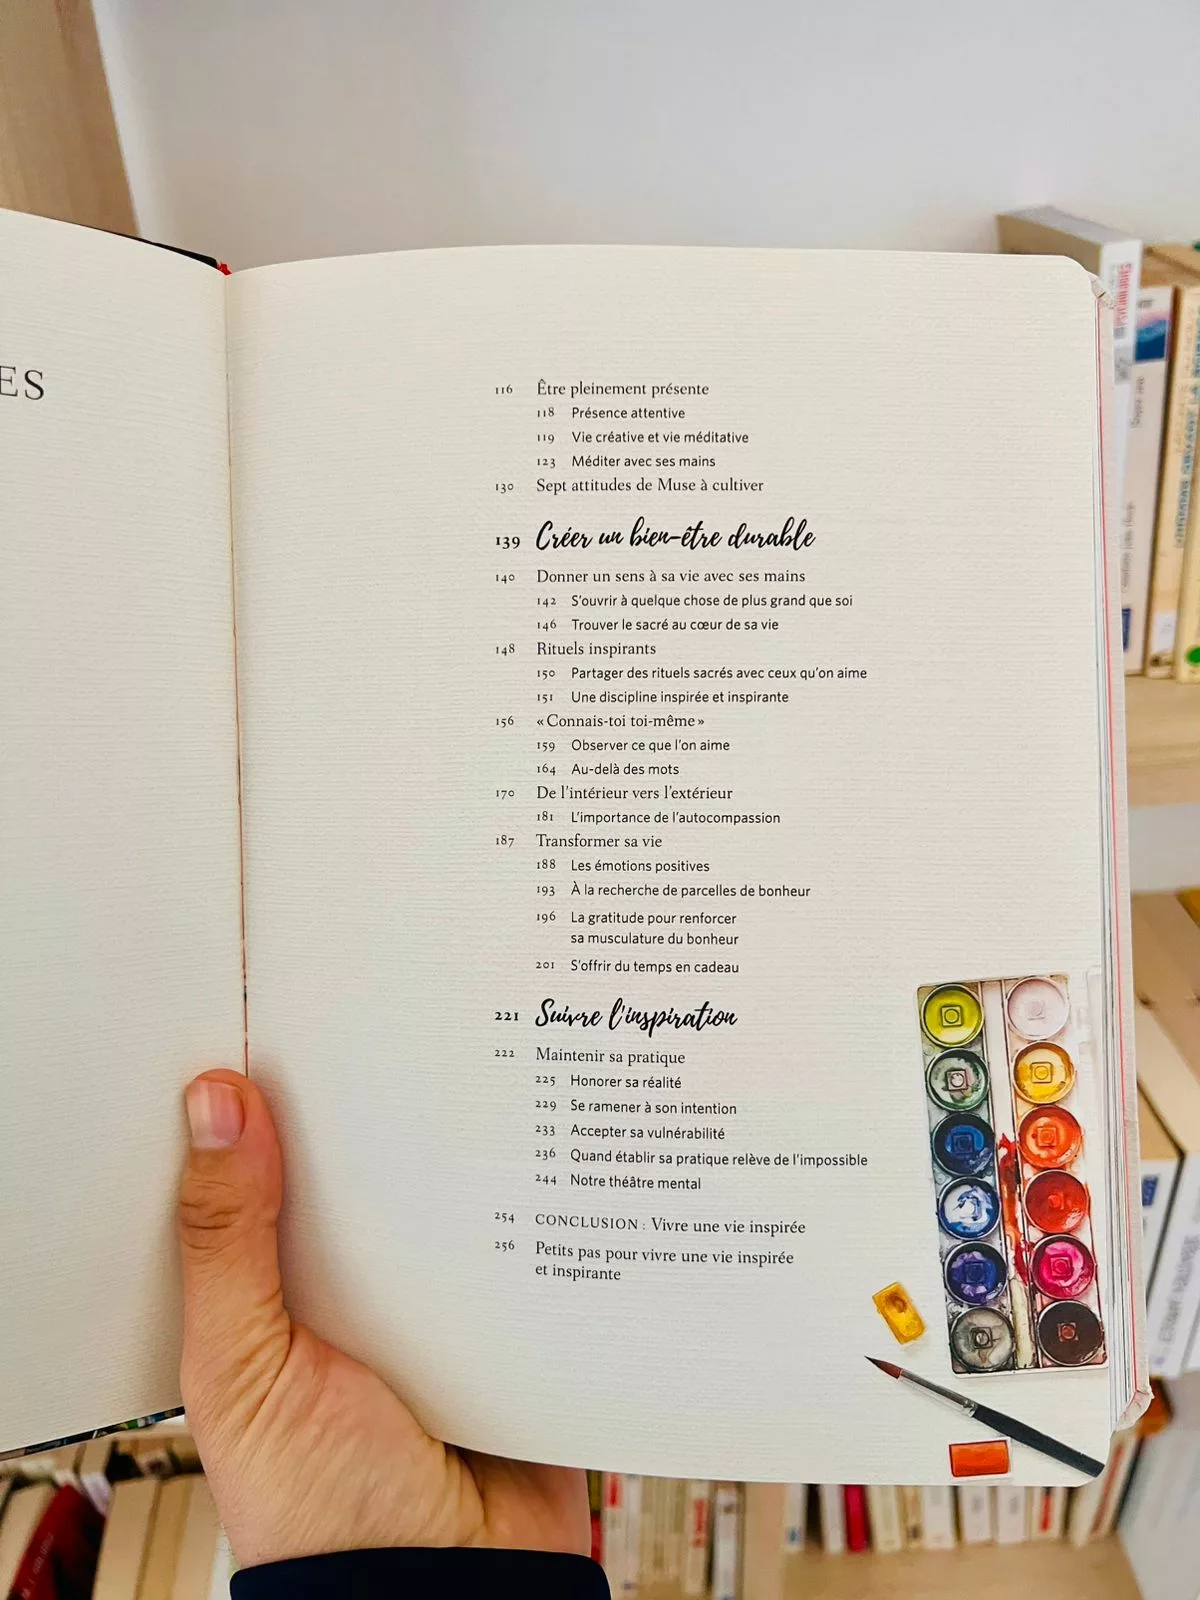 ES
116 Être pleinement présente
118 Présence attentive
119 Vie créative et vie méditative
123 Méditer avec ses mains
130 Sept attitudes de Muse à cultiver
139 Créer un bien-être durable
140 Donner un sens à sa vie avec ses mains
142 S'ouvrir à quelque chose de plus grand que soi
146 Trouver le sacré au cœur de sa vie
148 Rituels inspirants
150 Partager des rituels sacrés avec ceux qu'on aime
151 Une discipline inspirée et inspirante
156 « Connais-toi toi-même »
159 Observer ce que l'on aime
164 Au-delà des mots
170 De l'intérieur vers l'extérieur
181 L'importance de l'autocompassion
187 Transformer sa vie
188 Les émotions positives
193 À la recherche de parcelles de bonheur
196 La gratitude pour renforcer
sa musculature du bonheur
201 S'offrir du temps en cadeau
221 Suivre l'inspiration
222 Maintenir sa pratique
225 Honorer sa réalité
229 Se ramener à son intention
233 Accepter sa vulnérabilité
236 Quand établir sa pratique relève de l'impossible
244 Notre théâtre mental
254 CONCLUSION : Vivre une vie inspirée
256 Petits pas pour vivre une vie inspirée
et inspirante